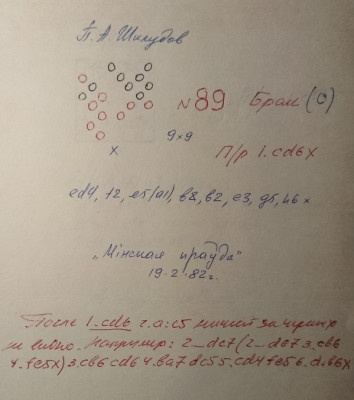 П. А. Шклудов
N 89 Брак (0)
9x9
x П/р 1.cd6X
ed4, f2, e5(a1), b8, b2, e3, g5, h6 x
„Мінская праўда"
19.2.82г.
После 1.cd6 г.a:c5 ничей за черных
не видно. Например: 2...dc7(2...de7 3.cb6
4.fe5X) 3.cb6 cd6 4.ba7 dc5 5.cd4 fe5 6.d:b6X